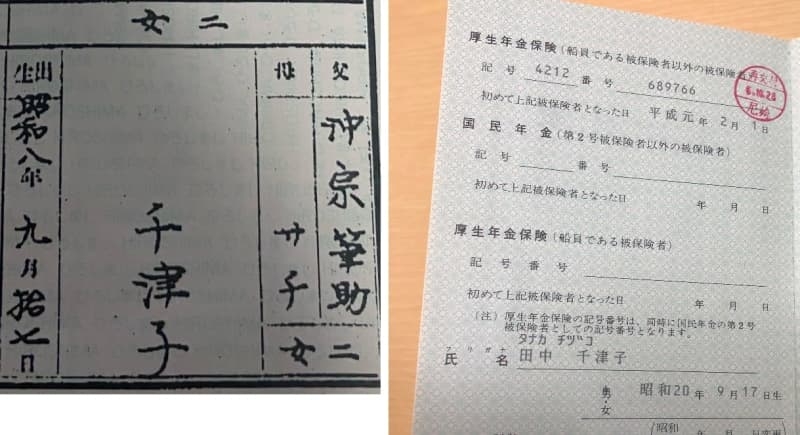 二女
父
沖宗筆助
母
サ子
二女
千津子
出生
昭和八年九月拾七日
厚生年金保険（船員である被保険者以外の被保険者）
記号 4212 番号 689766
初めて上記被保険者となった日 平成元年 2月 1日
国民年金（第2号被保険者以外の被保険者）
記号 番号
初めて上記被保険者となった日 年 月 日
厚生年金保険（船員である被保険者）
記号番号
初めて上記被保険者となった日 年 月 日
（注）厚生年金保険の記号番号は、同時に国民年金の第2号
被保険者としての記号番号となります。
フリガナ タナカ チヅコ
氏名 田中 千津子
男・女 昭和20年 9月17日生
昭和 年 月 日変更